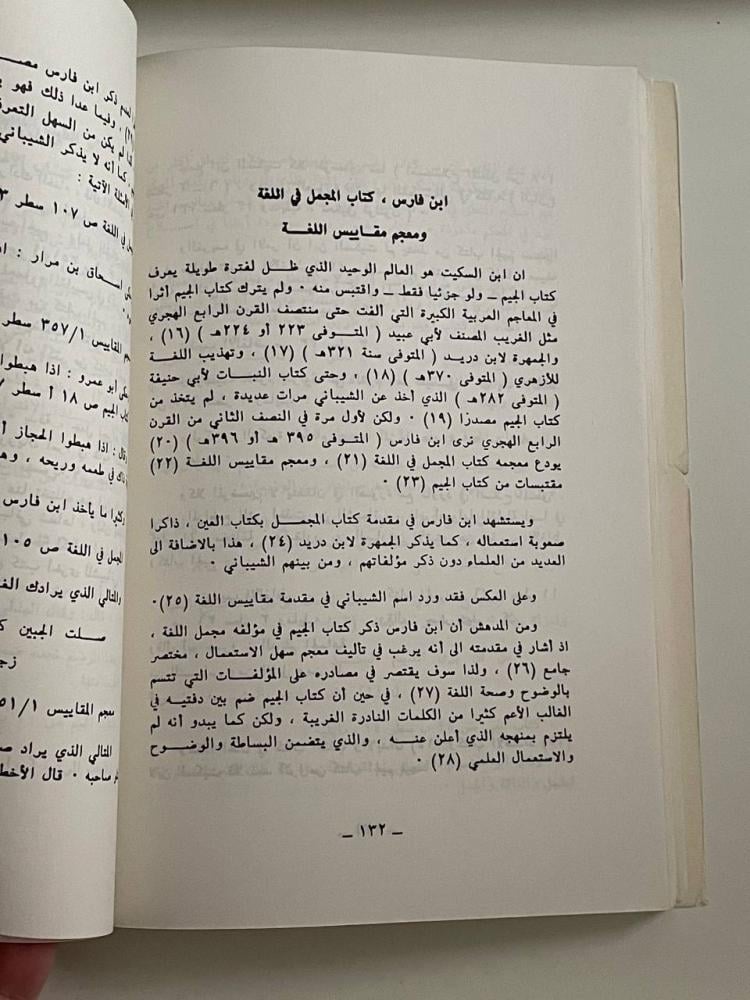 ابن فارس ، كتاب المجمل في اللغة
ومعجم مقاييس اللغــة
ان ابن السكيت هو العالم الوحيد الذي ظــل لفترة طويلة يعرف
كتاب الجيم ــ ولو جزئيا فقط ــ واقتبس منه ٠ ولم يترك كتاب الجيم أثرا
في المعاجم العربية الكبيرة التي ألفت حتى منتصف القرن الرابع الهجري
مثل الغريب المصنف لأبي عبيد ( المتــوفى ٢٢٣ أو ٢٢٤هـ ) (١٦) ،
والجمهرة لابن دريد ( المتوفى سنة ٣٢١هـ ) (١٧) ، وتهذيب اللغــة
للأزهري ( المتوفى ٣٧٠هـ ) (١٨) ، وحتى كتاب النبــات لأبي حنيفة
( المتوفى ٢٨٢هـ ) الذي أخذ عن الشيباني مرات عديدة ، لم يتخذ من
كتاب الجيم مصدرًا (١٩) ٠ ولكن لأول مرة في النصف الثاني من القرن
الرابع الهجري نرى ابن فارس ( المتــوفى ٣٩٥ هـ أو ٣٩٦هـ ) (٢٠)
يودع معجمه كتاب المجمل في اللغة (٢١) ، ومعجم مقاييس اللغــة (٢٢)
مقتبسات من كتاب الجيم (٢٣) ٠
ويستشهد ابن فارس في مقدمة كتاب المجمــل بكتاب العين ، ذاكرا
صعوبة استعماله ، كما يذكر الجمهرة لابن دريد (٢٤) ، هذا بالاضافة الى
العديد من العلماء دون ذكر مؤلفاتهم ، ومن بينهم الشيباني ٠
وعلى العكس فقد ورد اسم الشيباني في مقدمة مقاييس اللغة (٢٥)٠
ومن المدهش أن ابن فارس ذكر كتاب الجيم في مؤلفه مجمل اللغة ،
اذ أشار في مقدمته الى أنه يرغب في تأليف معجم سهل الاستعمال ، مختصر
جامع (٢٦) ، ولذا سوف يقتصر في مصادره على المؤلفــات التي تتسم
بالوضوح وصحة اللغة (٢٧) ، في حين أن كتاب الجيم ضم بين دفتيه في
الغالب الأعم كثيرا من الكلمات النادرة الغريبة ، ولكن كما يبدو أنه لم
يلتزم بمنهجه الذي أعلن عنــه ، والذي يتضمن البساطة والوضــوح
والاستعمال العلمي (٢٨) ٠
ــ ١٣٢ ــ
ذكر ابن فارس
، وفيما عدا ذلك فهو
لم يكن من السهل
كما أنه لا يذكر الشيباني
الأمثلة الآتية :
في اللغة ص ١٠٧ سطر
اسحاق بن مرار :
المقاييس ٣٥٧/١ سطر
أبو عمرو : اذا هبطوا
الجيم ص ١٨ أ سطر
: اذا هبطوا الحجاز
في طعمه وريحه ،
ما يأخذ ابن فارس
المجمل في اللغة ص
والتالي الذي يرادك
صــلت الجبين
معجم المقاييس
التالي الذي يراد
صاحبه ٠ قال